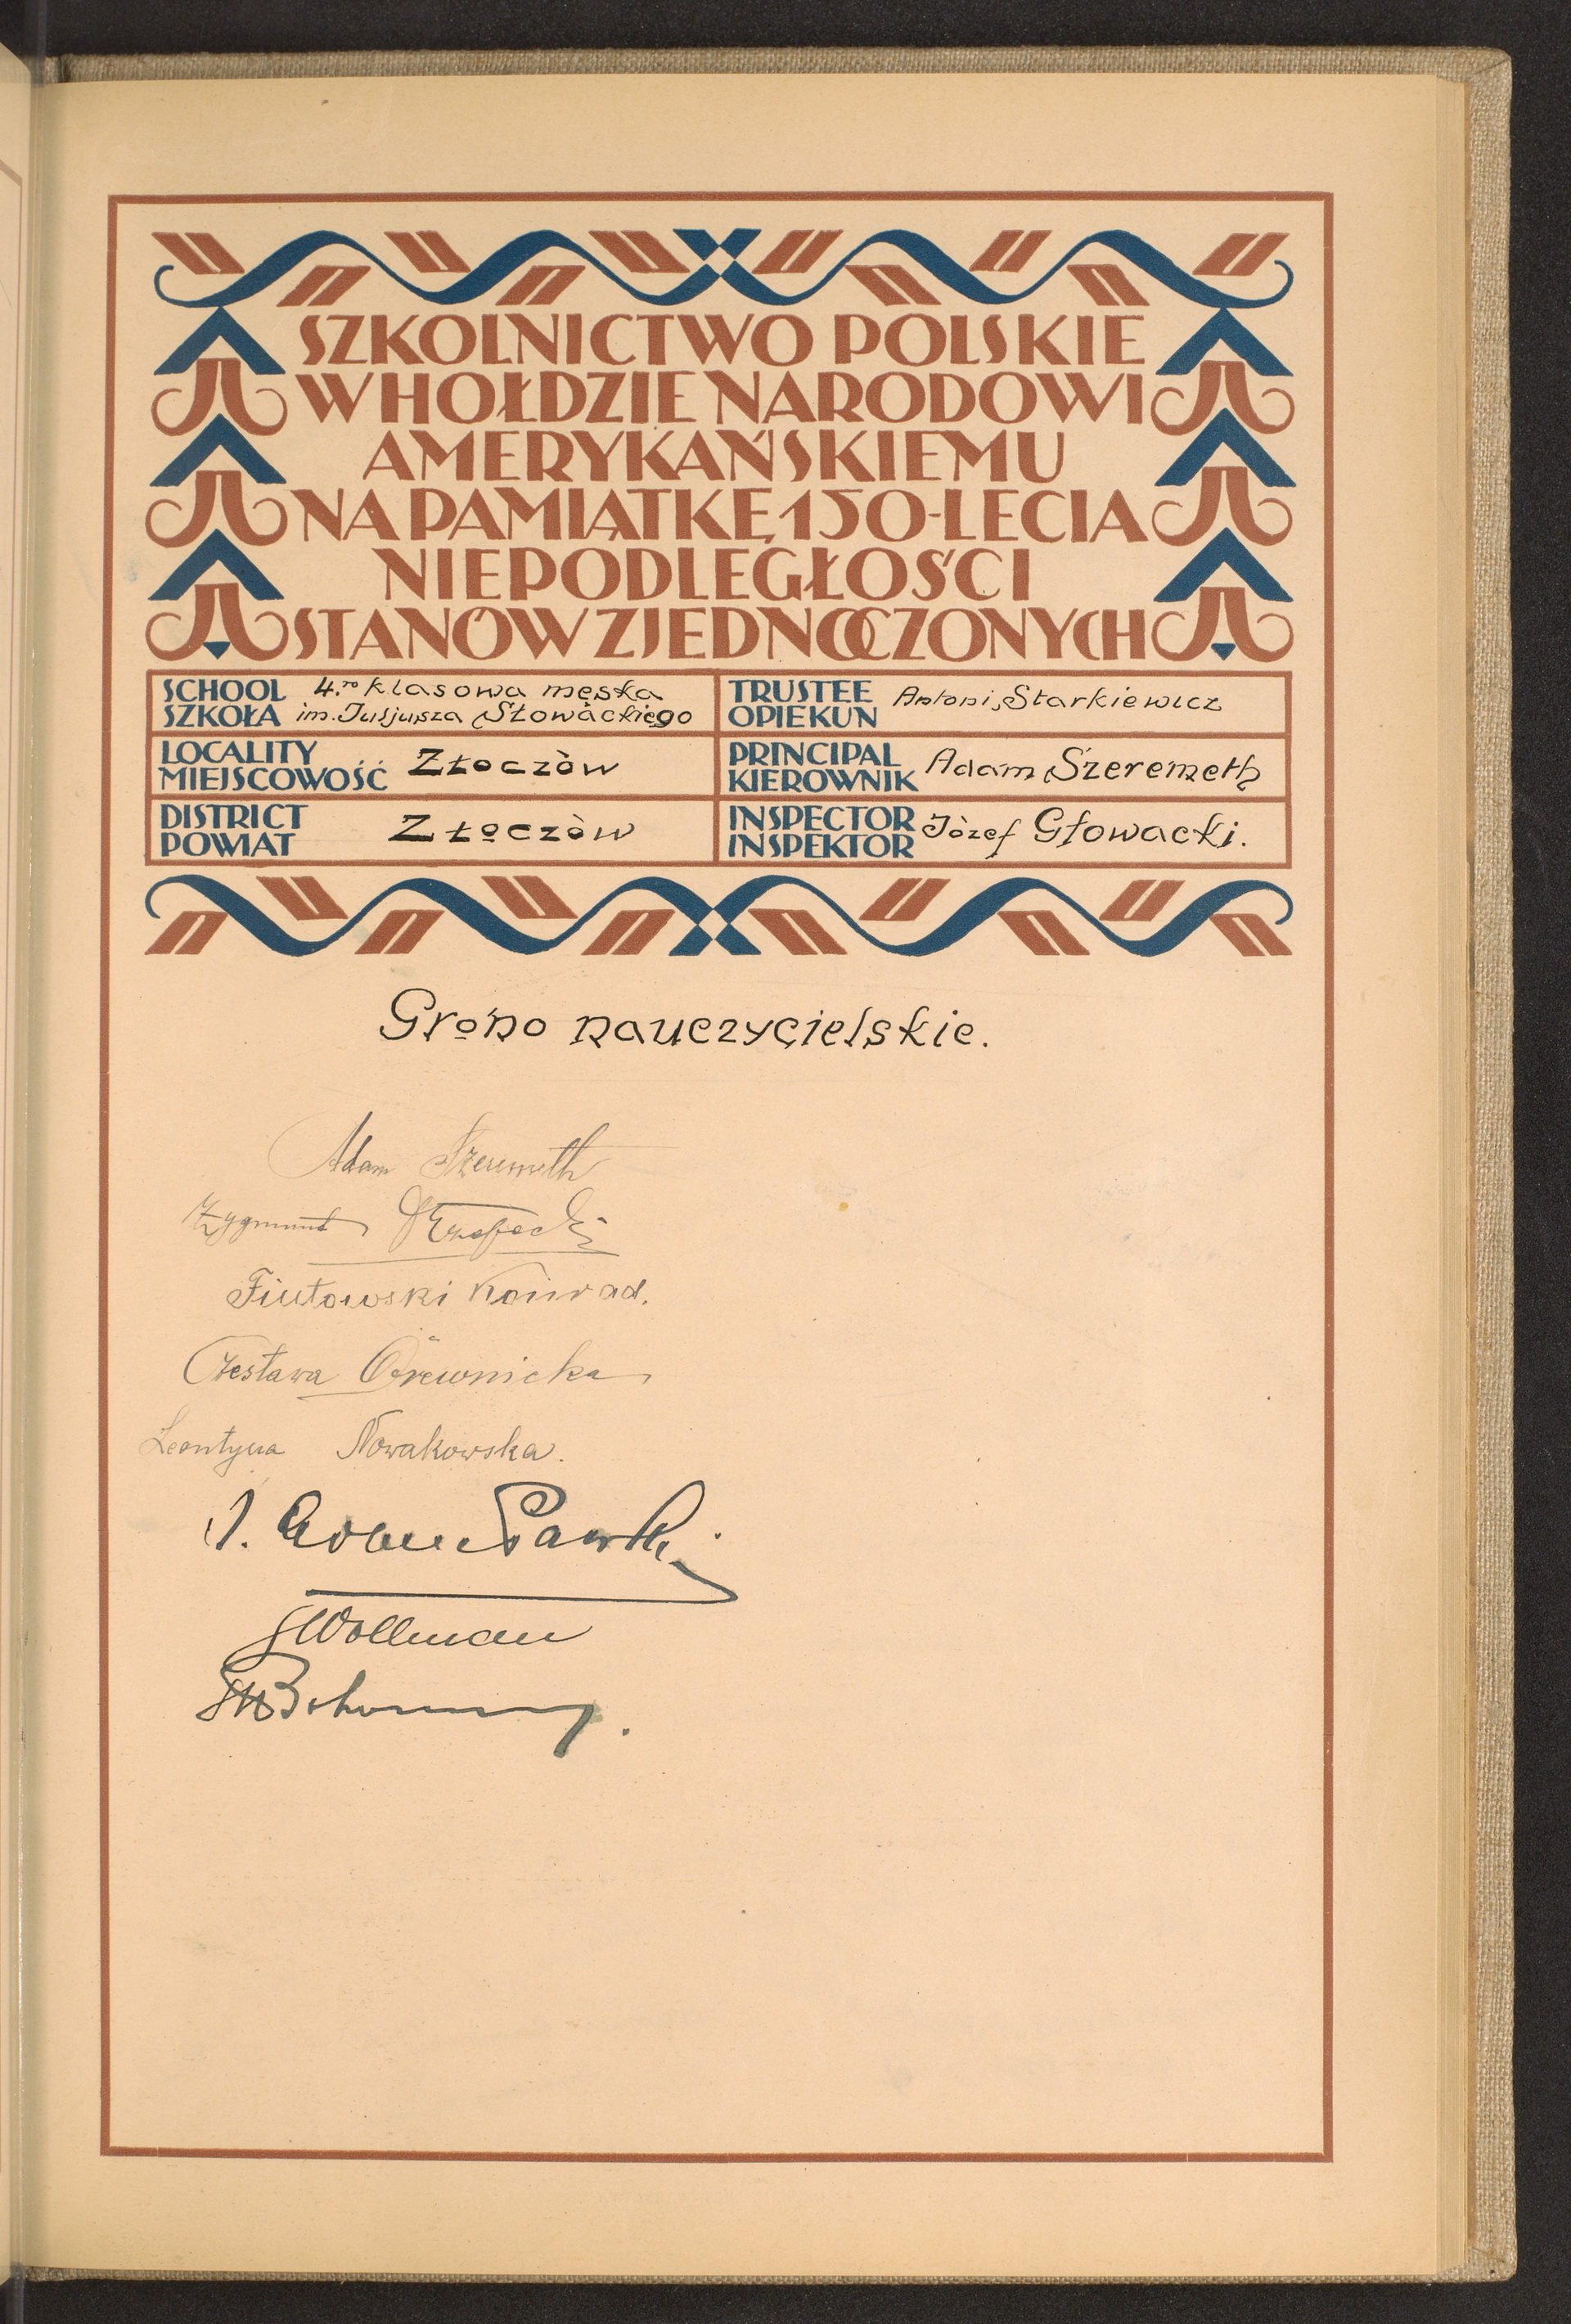 SZKOLNICTWO POLSKIE
W HOŁDZIE NARODOWI
AMERYKAŃSKIEMU
NA PAMIĄTKĘ 150-LECIA
NIEPODLEGŁOŚCI
STANÓW ZJEDNOCZONYCH
SCHOOL
SZKOŁA
4.ro klasowa męska
im. Juljusza Słowackiego
TRUSTEE
OPIEKUN
Antoni Starkiewicz
LOCALITY
MIEJSCOWOŚĆ
Złoczów
PRINCIPAL
KIEROWNIK
Adam Szeremeth
DISTRICT
POWIAT
Złoczów
INSPECTOR
INSPEKTOR
Józef Głowacki.
Grono nauczycielskie.
Adam Szeremeth
Zygmunt
Fiutowski Konrad.
Czesława Drewnicka
Leontyna Nowakowska.
J.
Wollman